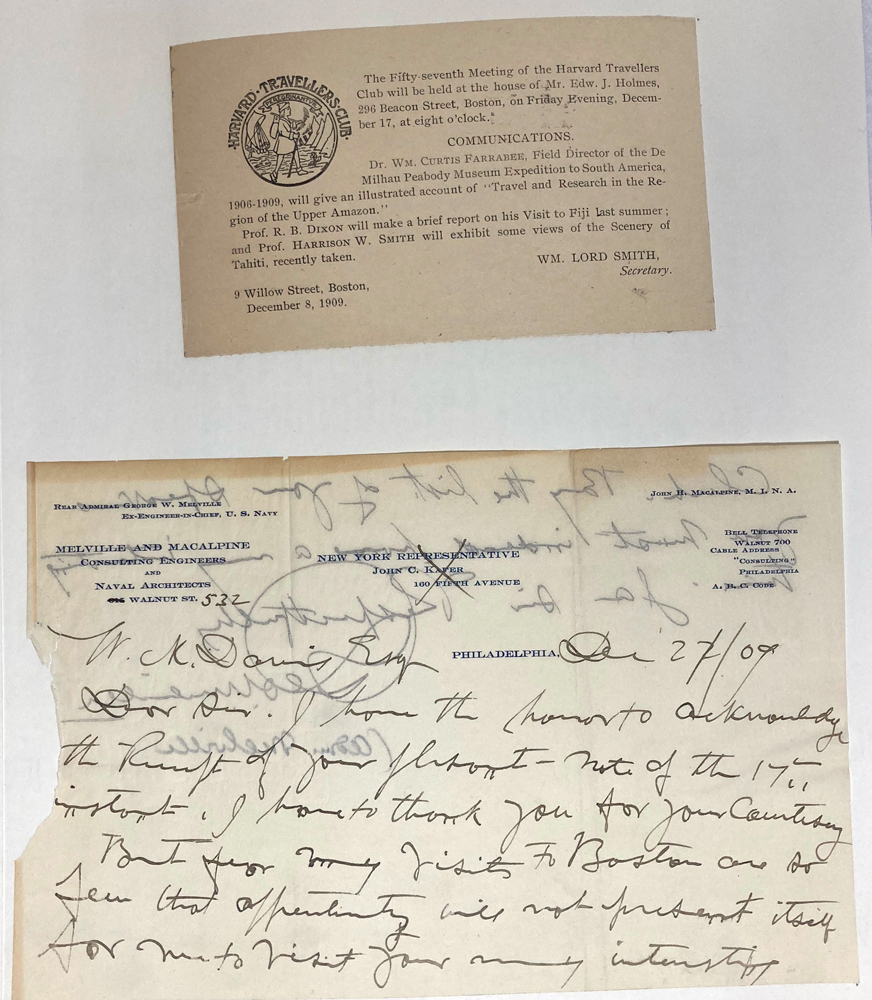 HARVARD·TRAVELLERS·CLUB·
The Fifty-seventh Meeting of the Harvard Travellers
Club will be held at the house of Mr. Edw. J. Holmes,
296 Beacon Street, Boston, on Friday Evening, Decem-
ber 17, at eight o'clock.
COMMUNICATIONS.
Dr. Wm. Curtis Farrabee, Field Director of the De
Milhau Peabody Museum Expedition to South America,
1906-1909, will give an illustrated account of "Travel and Research in the Re-
gion of the Upper Amazon."
Prof. R. B. Dixon will make a brief report on his Visit to Fiji last summer;
and Prof. Harrison W. Smith will exhibit some views of the Scenery of
Tahiti, recently taken.
WM. LORD SMITH,
Secretary.
9 Willow Street, Boston,
December 8, 1909.
Rear Admiral George W. Melville
Ex-Engineer-in-Chief, U. S. Navy
John H. Macalpine, M. I. N. A.
MELVILLE AND MACALPINE
Consulting Engineers
and
Naval Architects
WALNUT ST. 532
NEW YORK REPRESENTATIVE
John C. Kafer
160 FIFTH AVENUE
Bell Telephone
Walnut 700
Cable Address
"Consulting"
Philadelphia
A. B. C. Code
PHILADELPHIA, Dec 27/09
W. M. Davis Esq
Dear Sir. I have the honor to acknowledge
the Receipt of your pleasant note of the 17"
instant. I have to thank you for your Courtesy
But for my Visits to Boston are so
few that oppertunity will not present itself
for me to Visit your many interesting